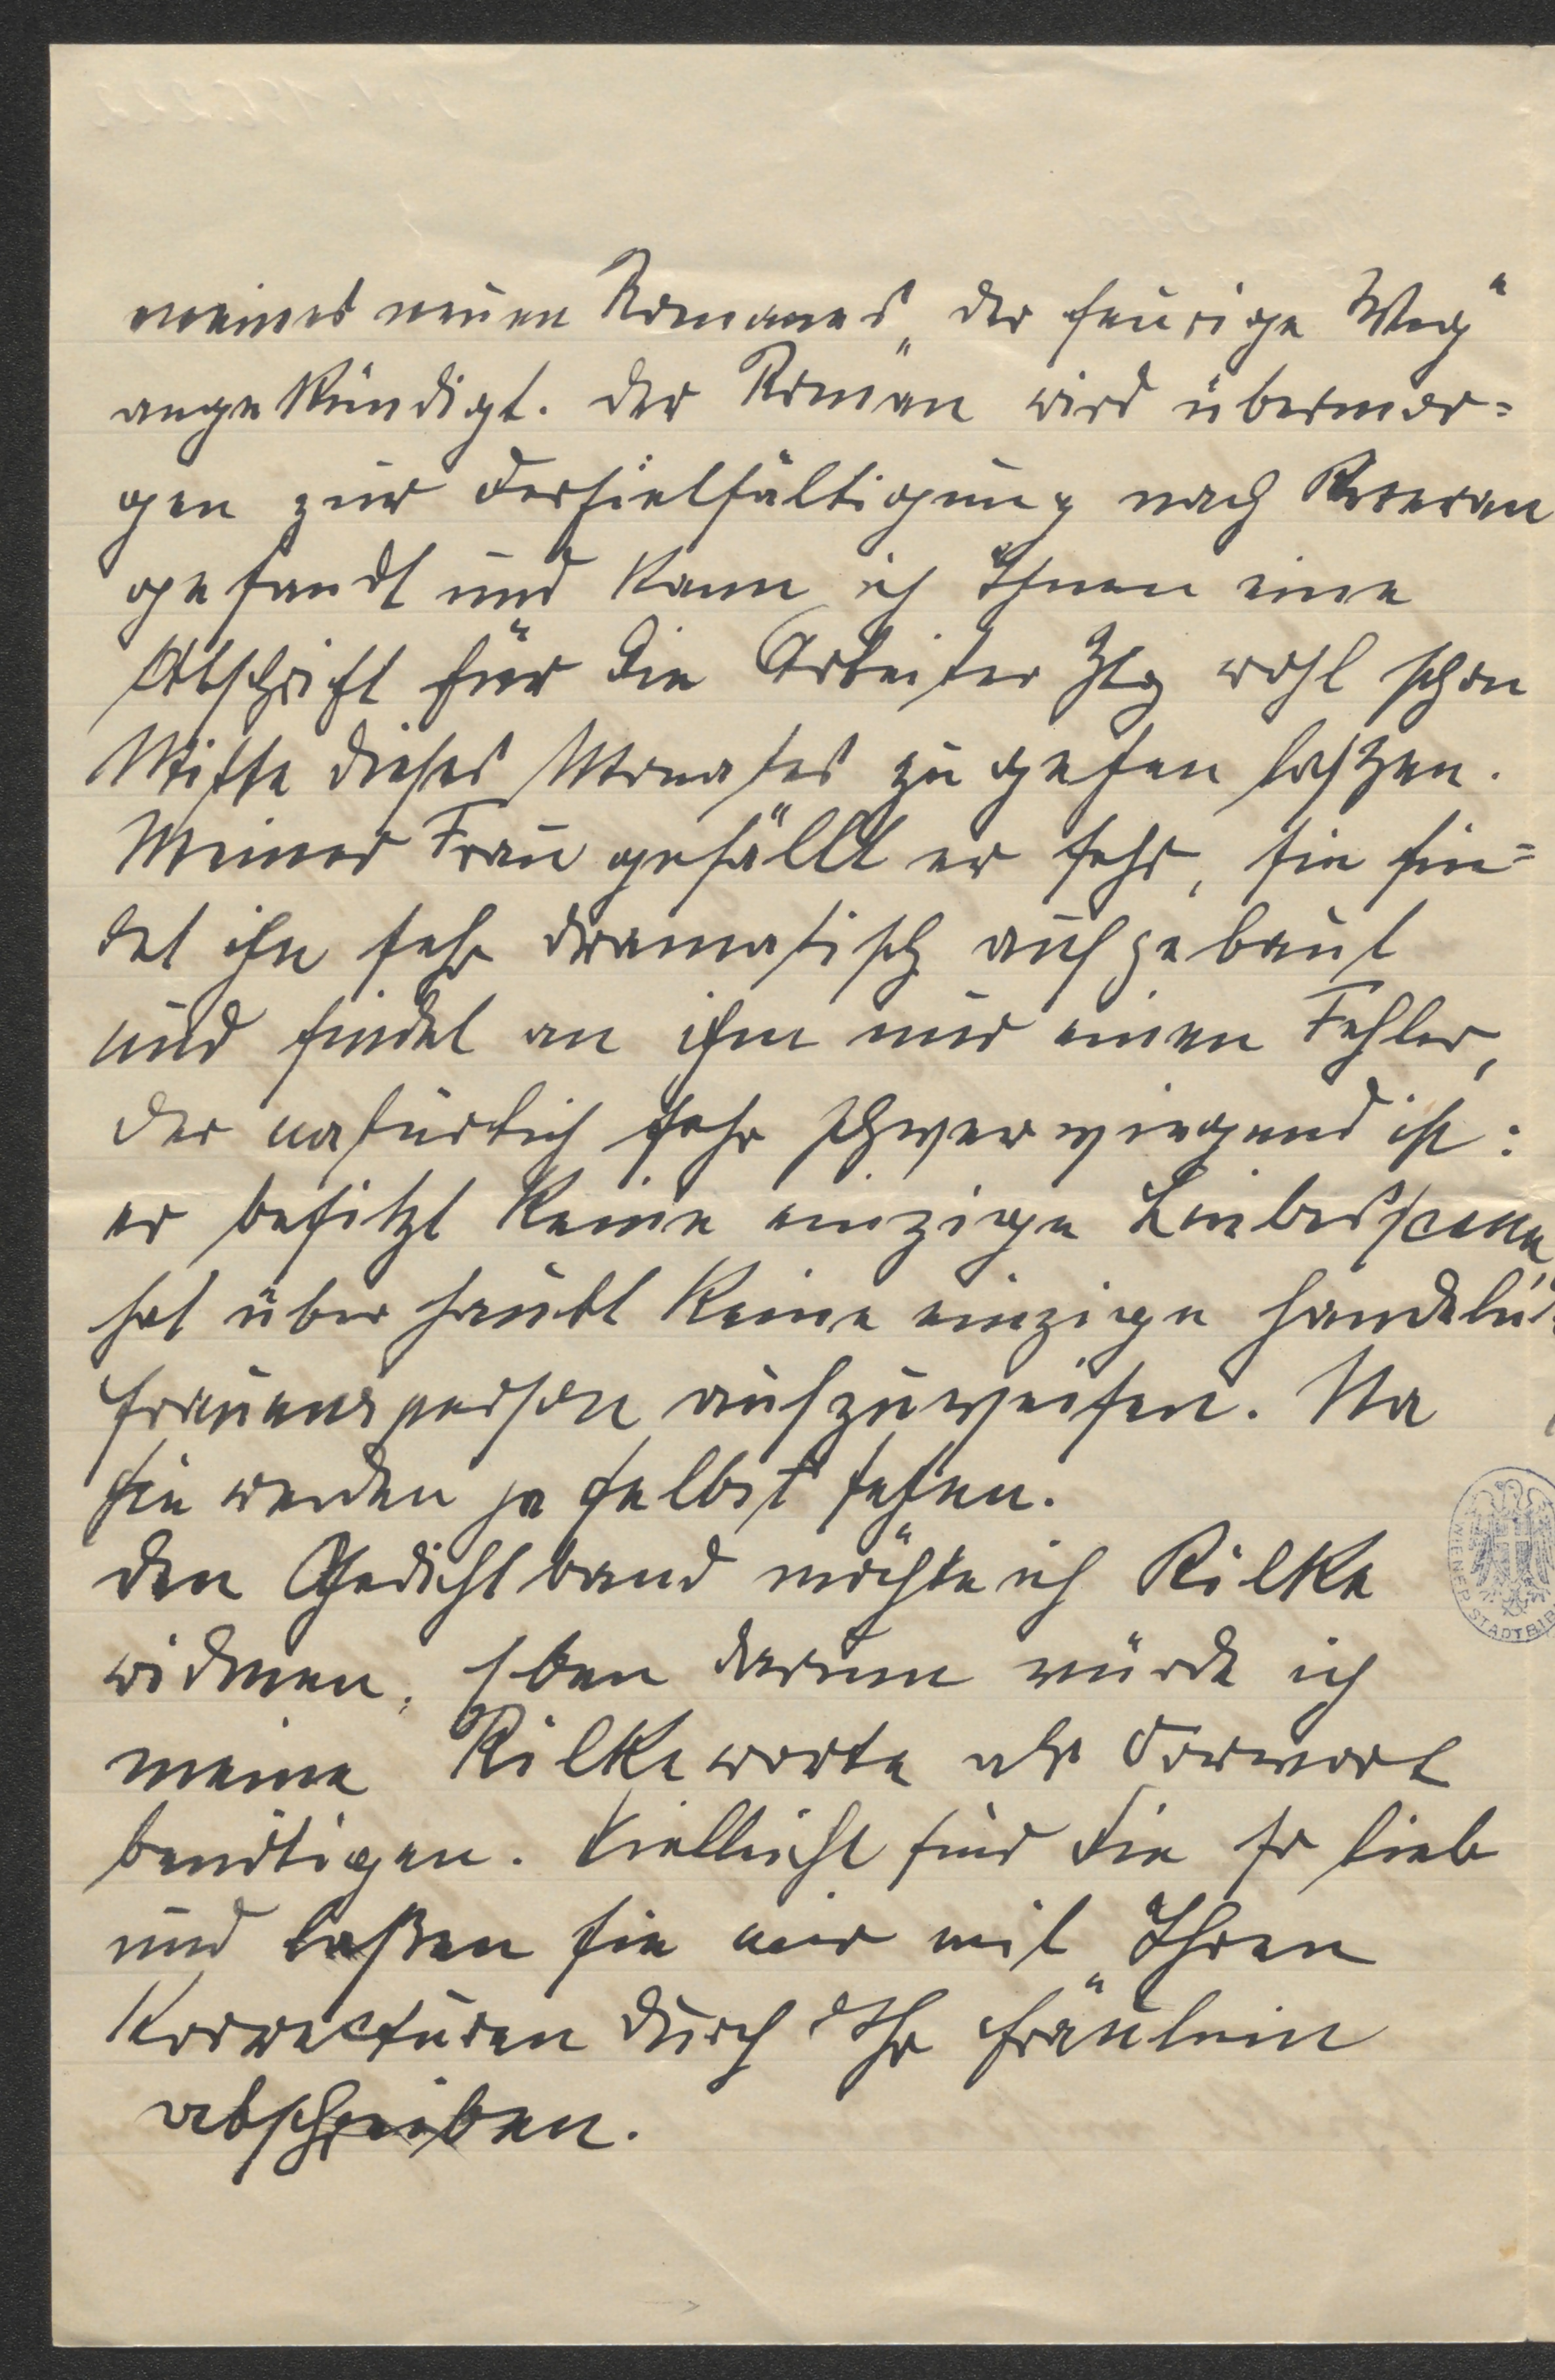 meines neuen Romanes „der feurige Weg“
angekündigt. Der Roman wird übermor=
gen zur Vervielfältigung nach Meran
gesandt und kann ich Ihnen eine
Abschrift für die Arbeiter Ztg wohl schon
Mitte dieses Monates zugehen lassen.
Meiner Frau gefällt er sehr, sie fin=
det ihn sehr dramatisch aufgebaut
und findet an ihm nur einen Fehler,
der natürlich sehr schwerwiegend ist:
er besitzt keine einzige Liebesscene
hat überhaubt keine einzige handelnde
Frauensperson aufzuweisen. Na
Sie werden ja selbst sehen.
Den Gedichtband möchte ich Rilke
widmen, eben darum würde ich
meine Rilkeworte als Vorwort
benötigen. Vielleicht sind Sie so lieb
und laßen sie mir mit Ihren
Korrecturen durch Ihr Fräulein
abschreiben.
WIENER STADTBIB